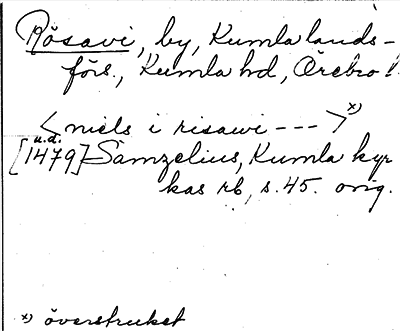 Rösavi, by, Kumla lands-
förs., Kumla hd, Örebro l.
<niels i risawi --->x)
u.d.
[1479] Samzelius, Kumla kyr
kas rb, s. 45. orig.
x) överstruket